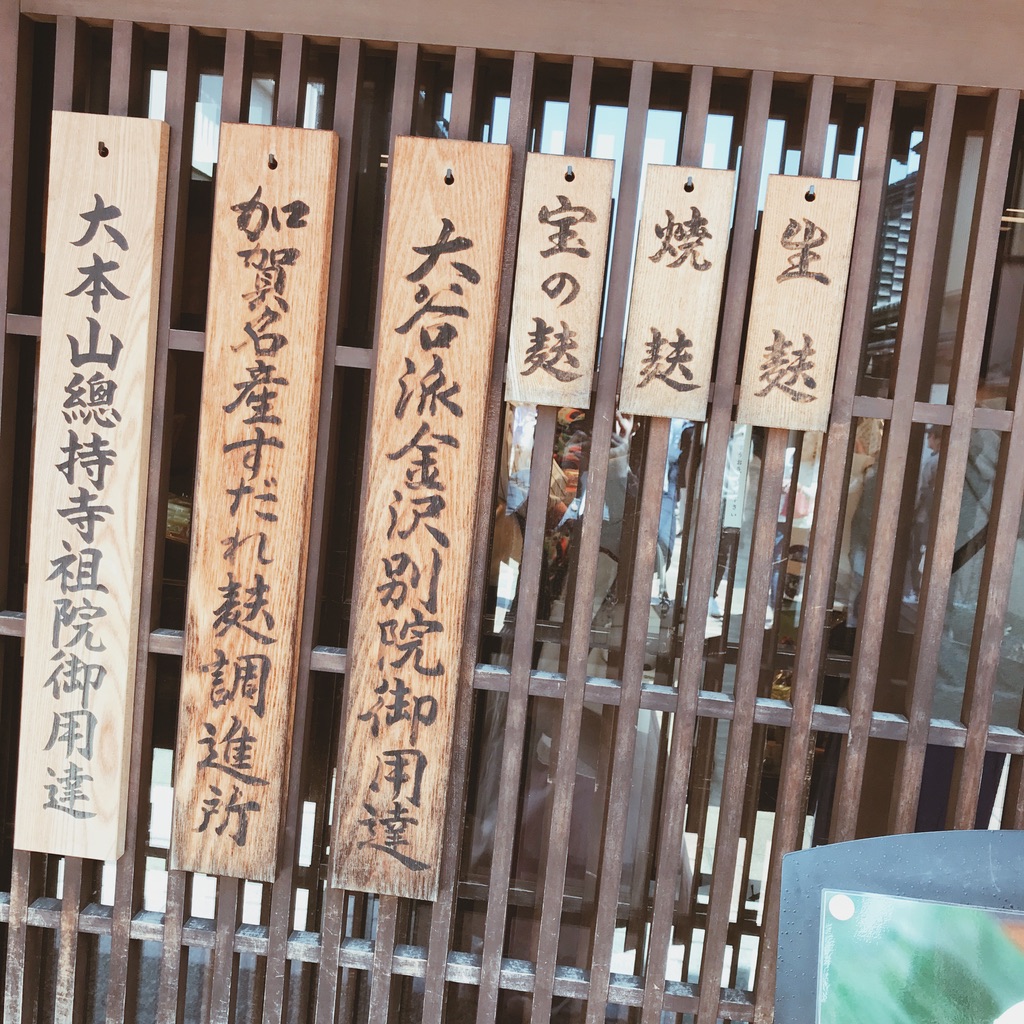 生麩
焼麩
宝の麩
大谷派金沢別院御用達
加賀名産すだれ麩調進所
大本山總持寺祖院御用達